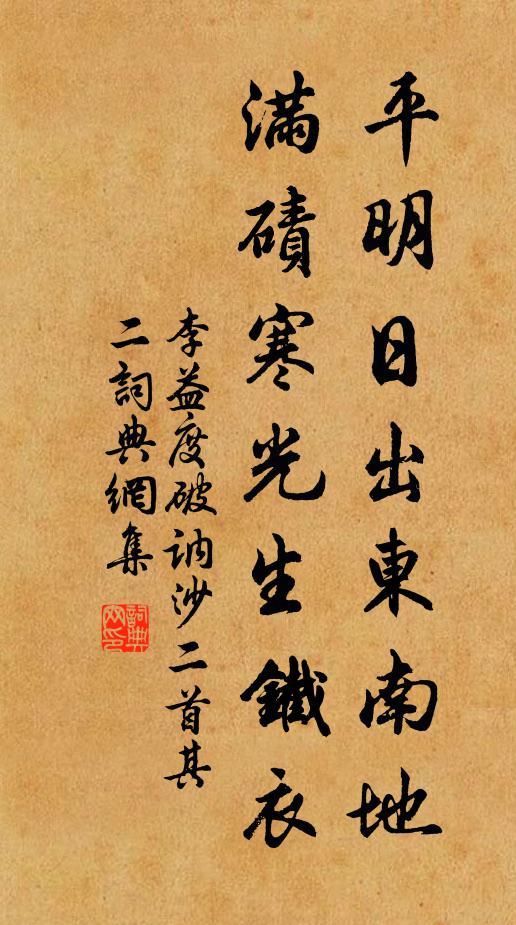 平明日出東南地
滿磧寒光生鐵衣
李益度破訥沙二首其
二詞典網集
詞典網印